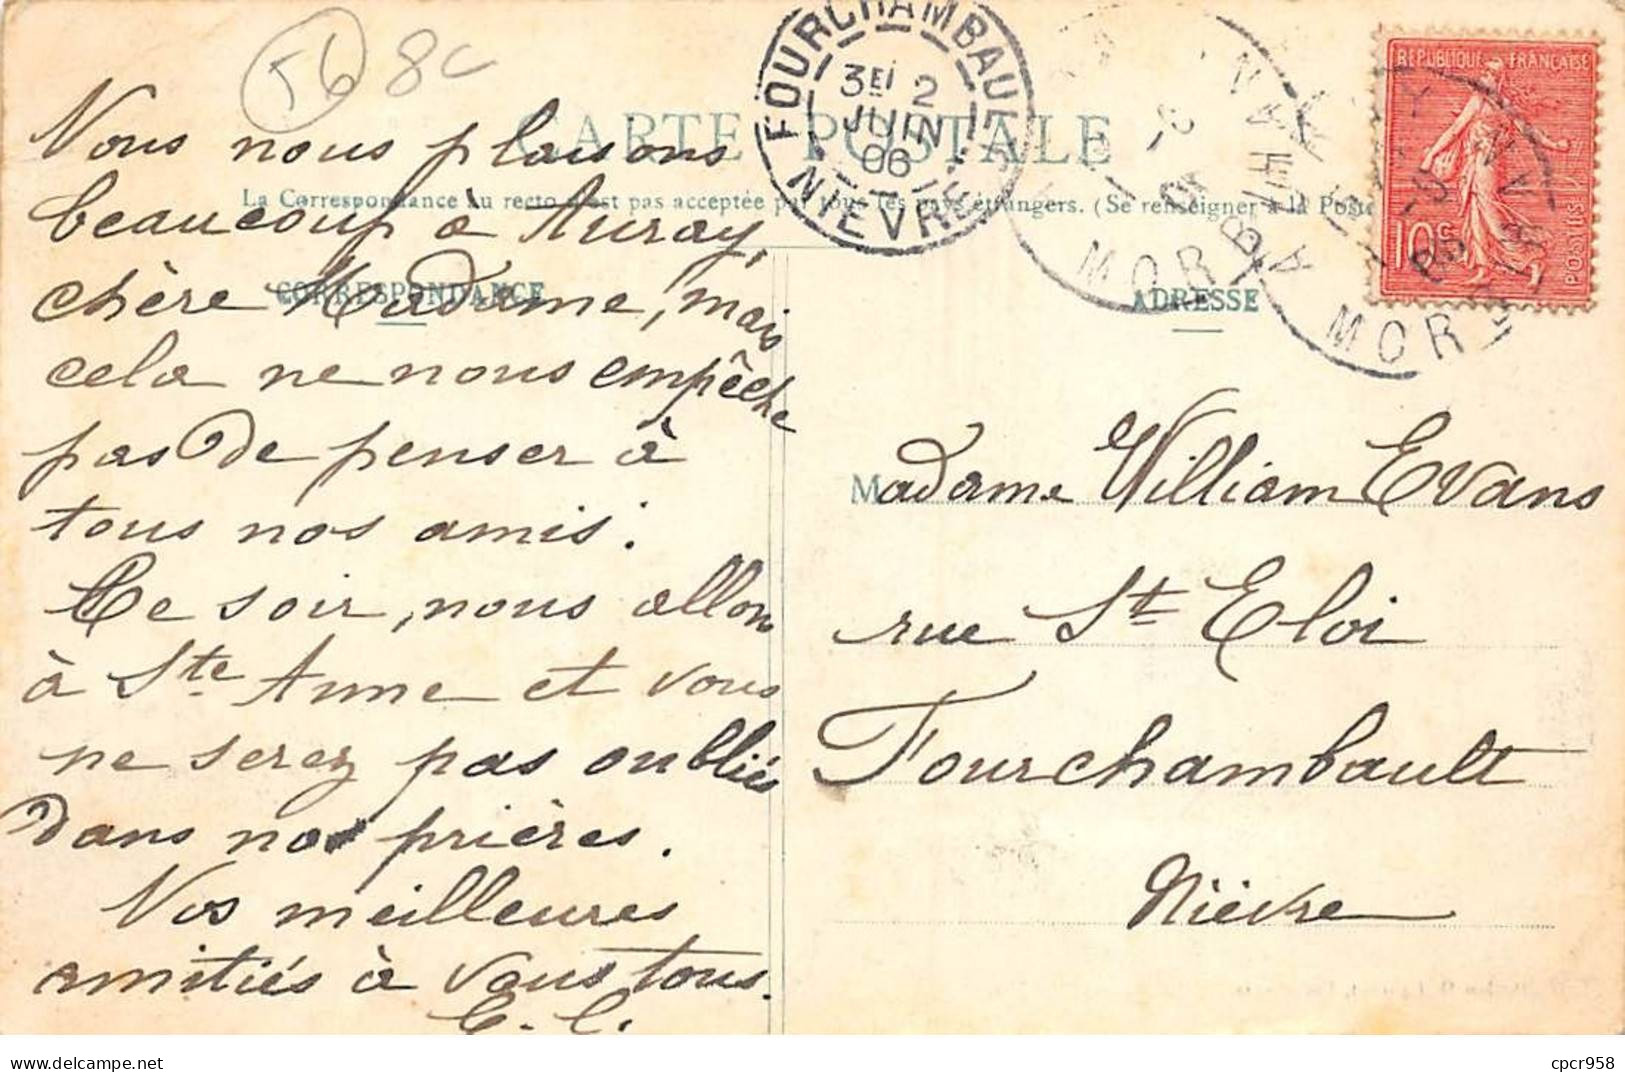 56 8c
CARTE POSTALE
La Correspondance au recto n'est pas acceptée par tous les pays étrangers. (Se renseigner à la Poste
CORRESPONDANCE
Nous nous plaisons
beaucoup à Auray,
chère Madame, mais
cela ne nous empêche
pas de penser à
tous nos amis.
Ce soir, nous allons
à Ste Anne et vous
ne serez pas oubliés
dans nos prières.
Vos meilleures
amitiés à vous tous.
E. C.
FOURCHAMBAULT
3E 2
JUIN
06
NIEVRE
MORBIHAN
MORBIHAN
REPUBLIQUE FRANÇAISE
10c
POSTES
ADRESSE
Madame William Evans
rue St Eloi
Fourchambault
Nièvre
cpcr958